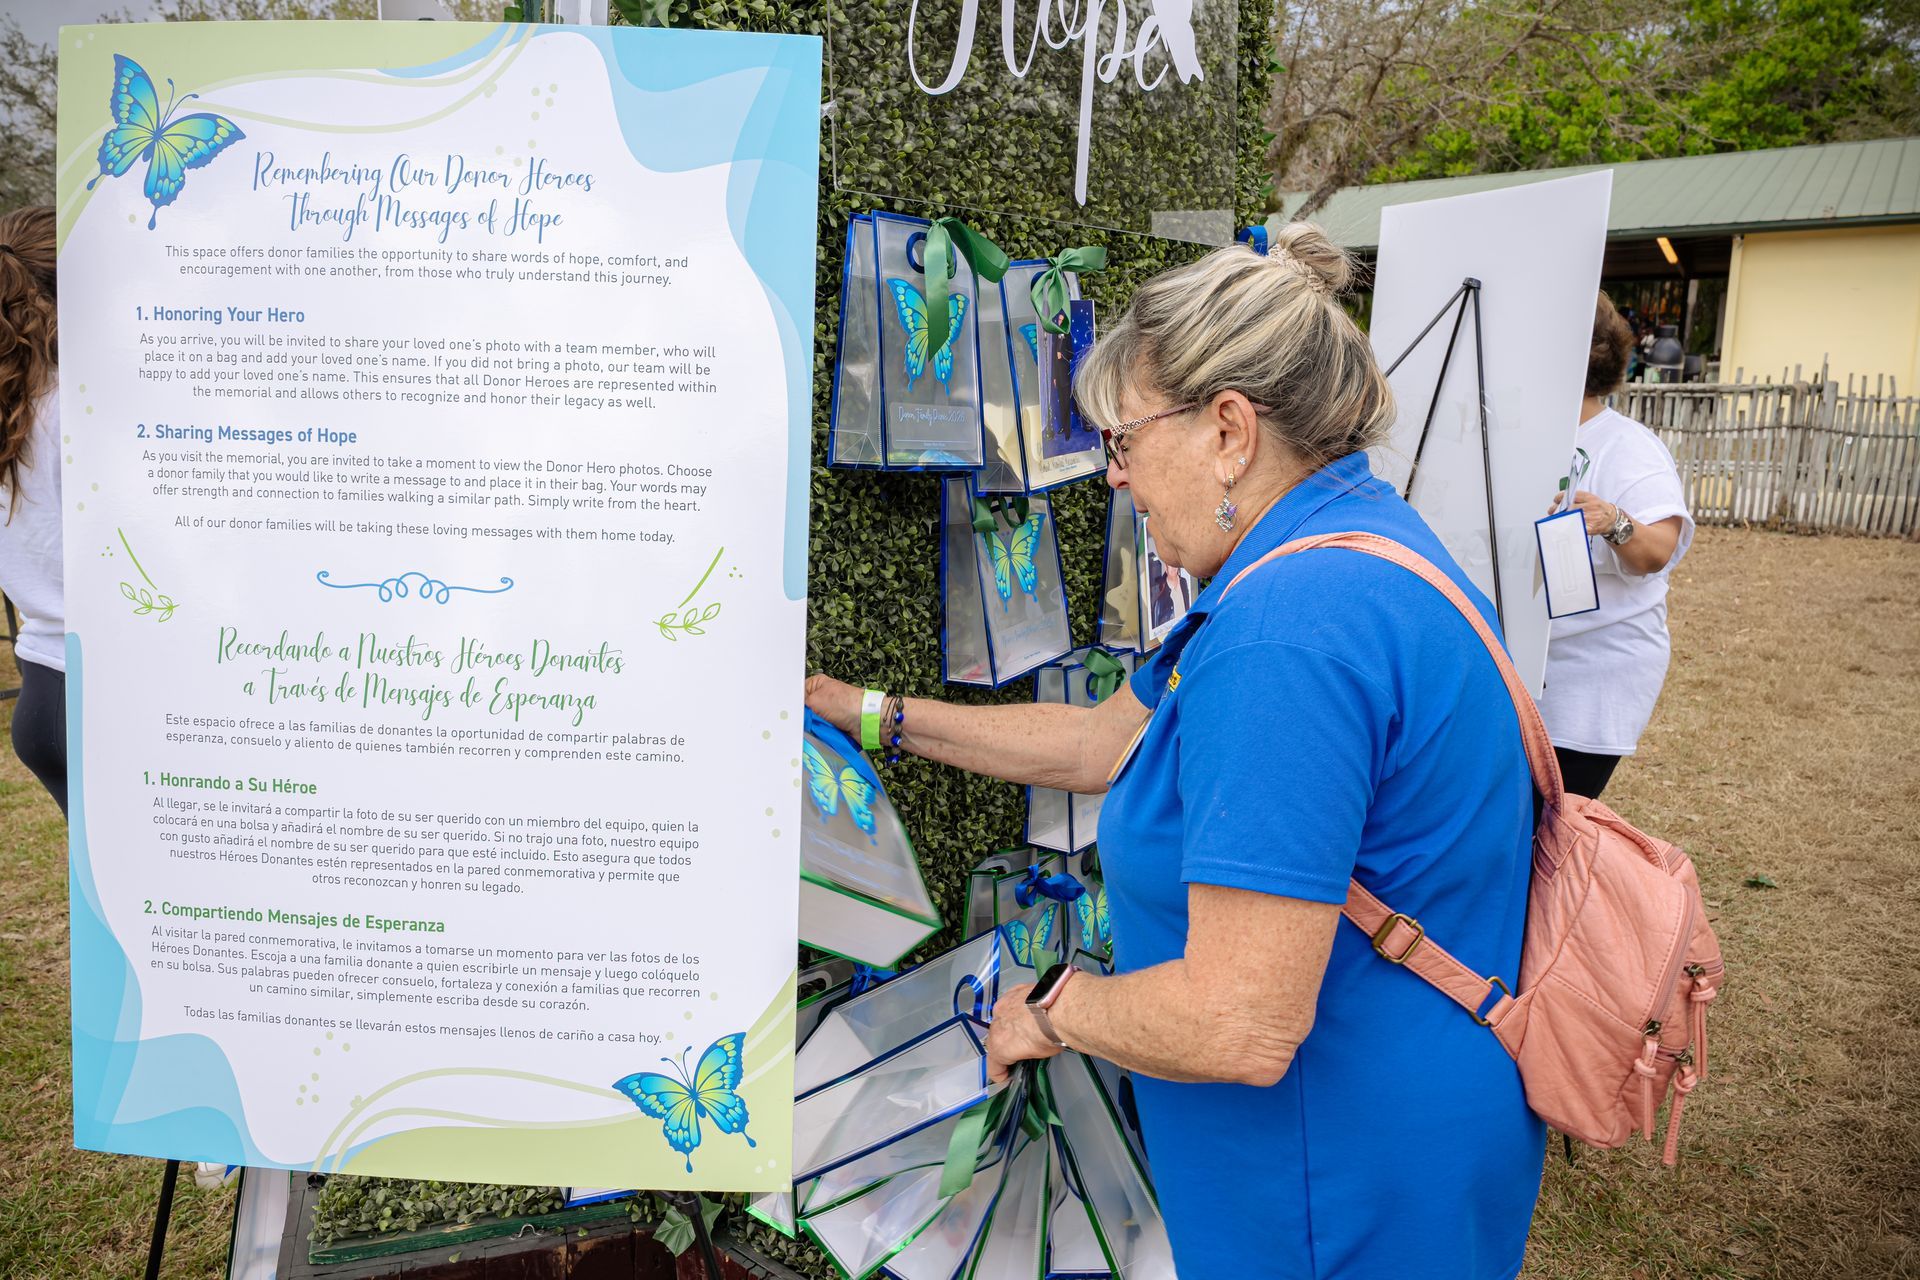 Hope
Remembering Our Donor Heroes
Through Messages of Hope
This space offers donor families the opportunity to share words of hope, comfort, and
encouragement with one another, from those who truly understand this journey.
1. Honoring Your Hero
As you arrive, you will be invited to share your loved one's photo with a team member, who will
place it on a bag and add your loved one's name. If you did not bring a photo, our team will be
happy to add your loved one's name. This ensures that all Donor Heroes are represented within
the memorial and allows others to recognize and honor their legacy as well.
2. Sharing Messages of Hope
As you visit the memorial, you are invited to take a moment to view the Donor Hero photos. Choose
a donor family that you would like to write a message to and place it in their bag. Your words may
offer strength and connection to families walking a similar path. Simply write from the heart.
All of our donor families will be taking these loving messages with them home today.
Recordando a Nuestros Héroes Donantes
a Través de Mensajes de Esperanza
Este espacio ofrece a las familias de donantes la oportunidad de compartir palabras de
esperanza, consuelo y aliento de quienes también recorren y comprenden este camino.
1. Honrando a Su Héroe
Al llegar, se le invitará a compartir la foto de su ser querido con un miembro del equipo, quien la
colocará en una bolsa y añadirá el nombre de su ser querido. Si no trajo una foto, nuestro equipo
con gusto añadirá el nombre de su ser querido para que esté incluido. Esto asegura que todos
nuestros Héroes Donantes estén representados en la pared conmemorativa y permite que
otros reconozcan y honren su legado.
2. Compartiendo Mensajes de Esperanza
Al visitar la pared conmemorativa, le invitamos a tomarse un momento para ver las fotos de los
Héroes Donantes. Escoja a una familia donante a quien escribirle un mensaje y luego colóquelo
en su bolsa. Sus palabras pueden ofrecer consuelo, fortaleza y conexión a familias que recorren
un camino similar, simplemente escriba desde su corazón.
Todas las familias donantes se llevarán estos mensajes llenos de cariño a casa hoy.
Donor Family Picnic 2026